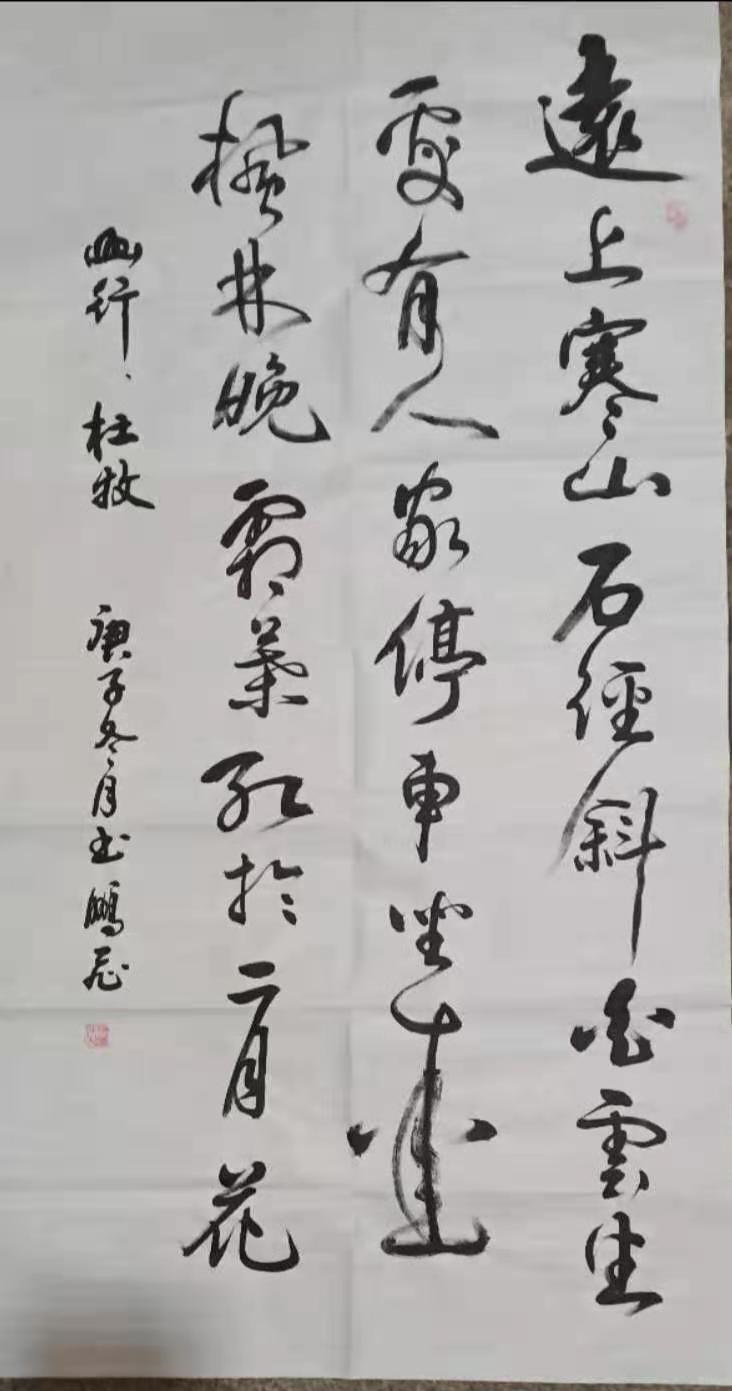 遠上寒山石徑斜白雲生
處有人家停車坐愛
楓林晚霜葉紅於二月花
山行、杜牧 庚子冬月书鵬飛